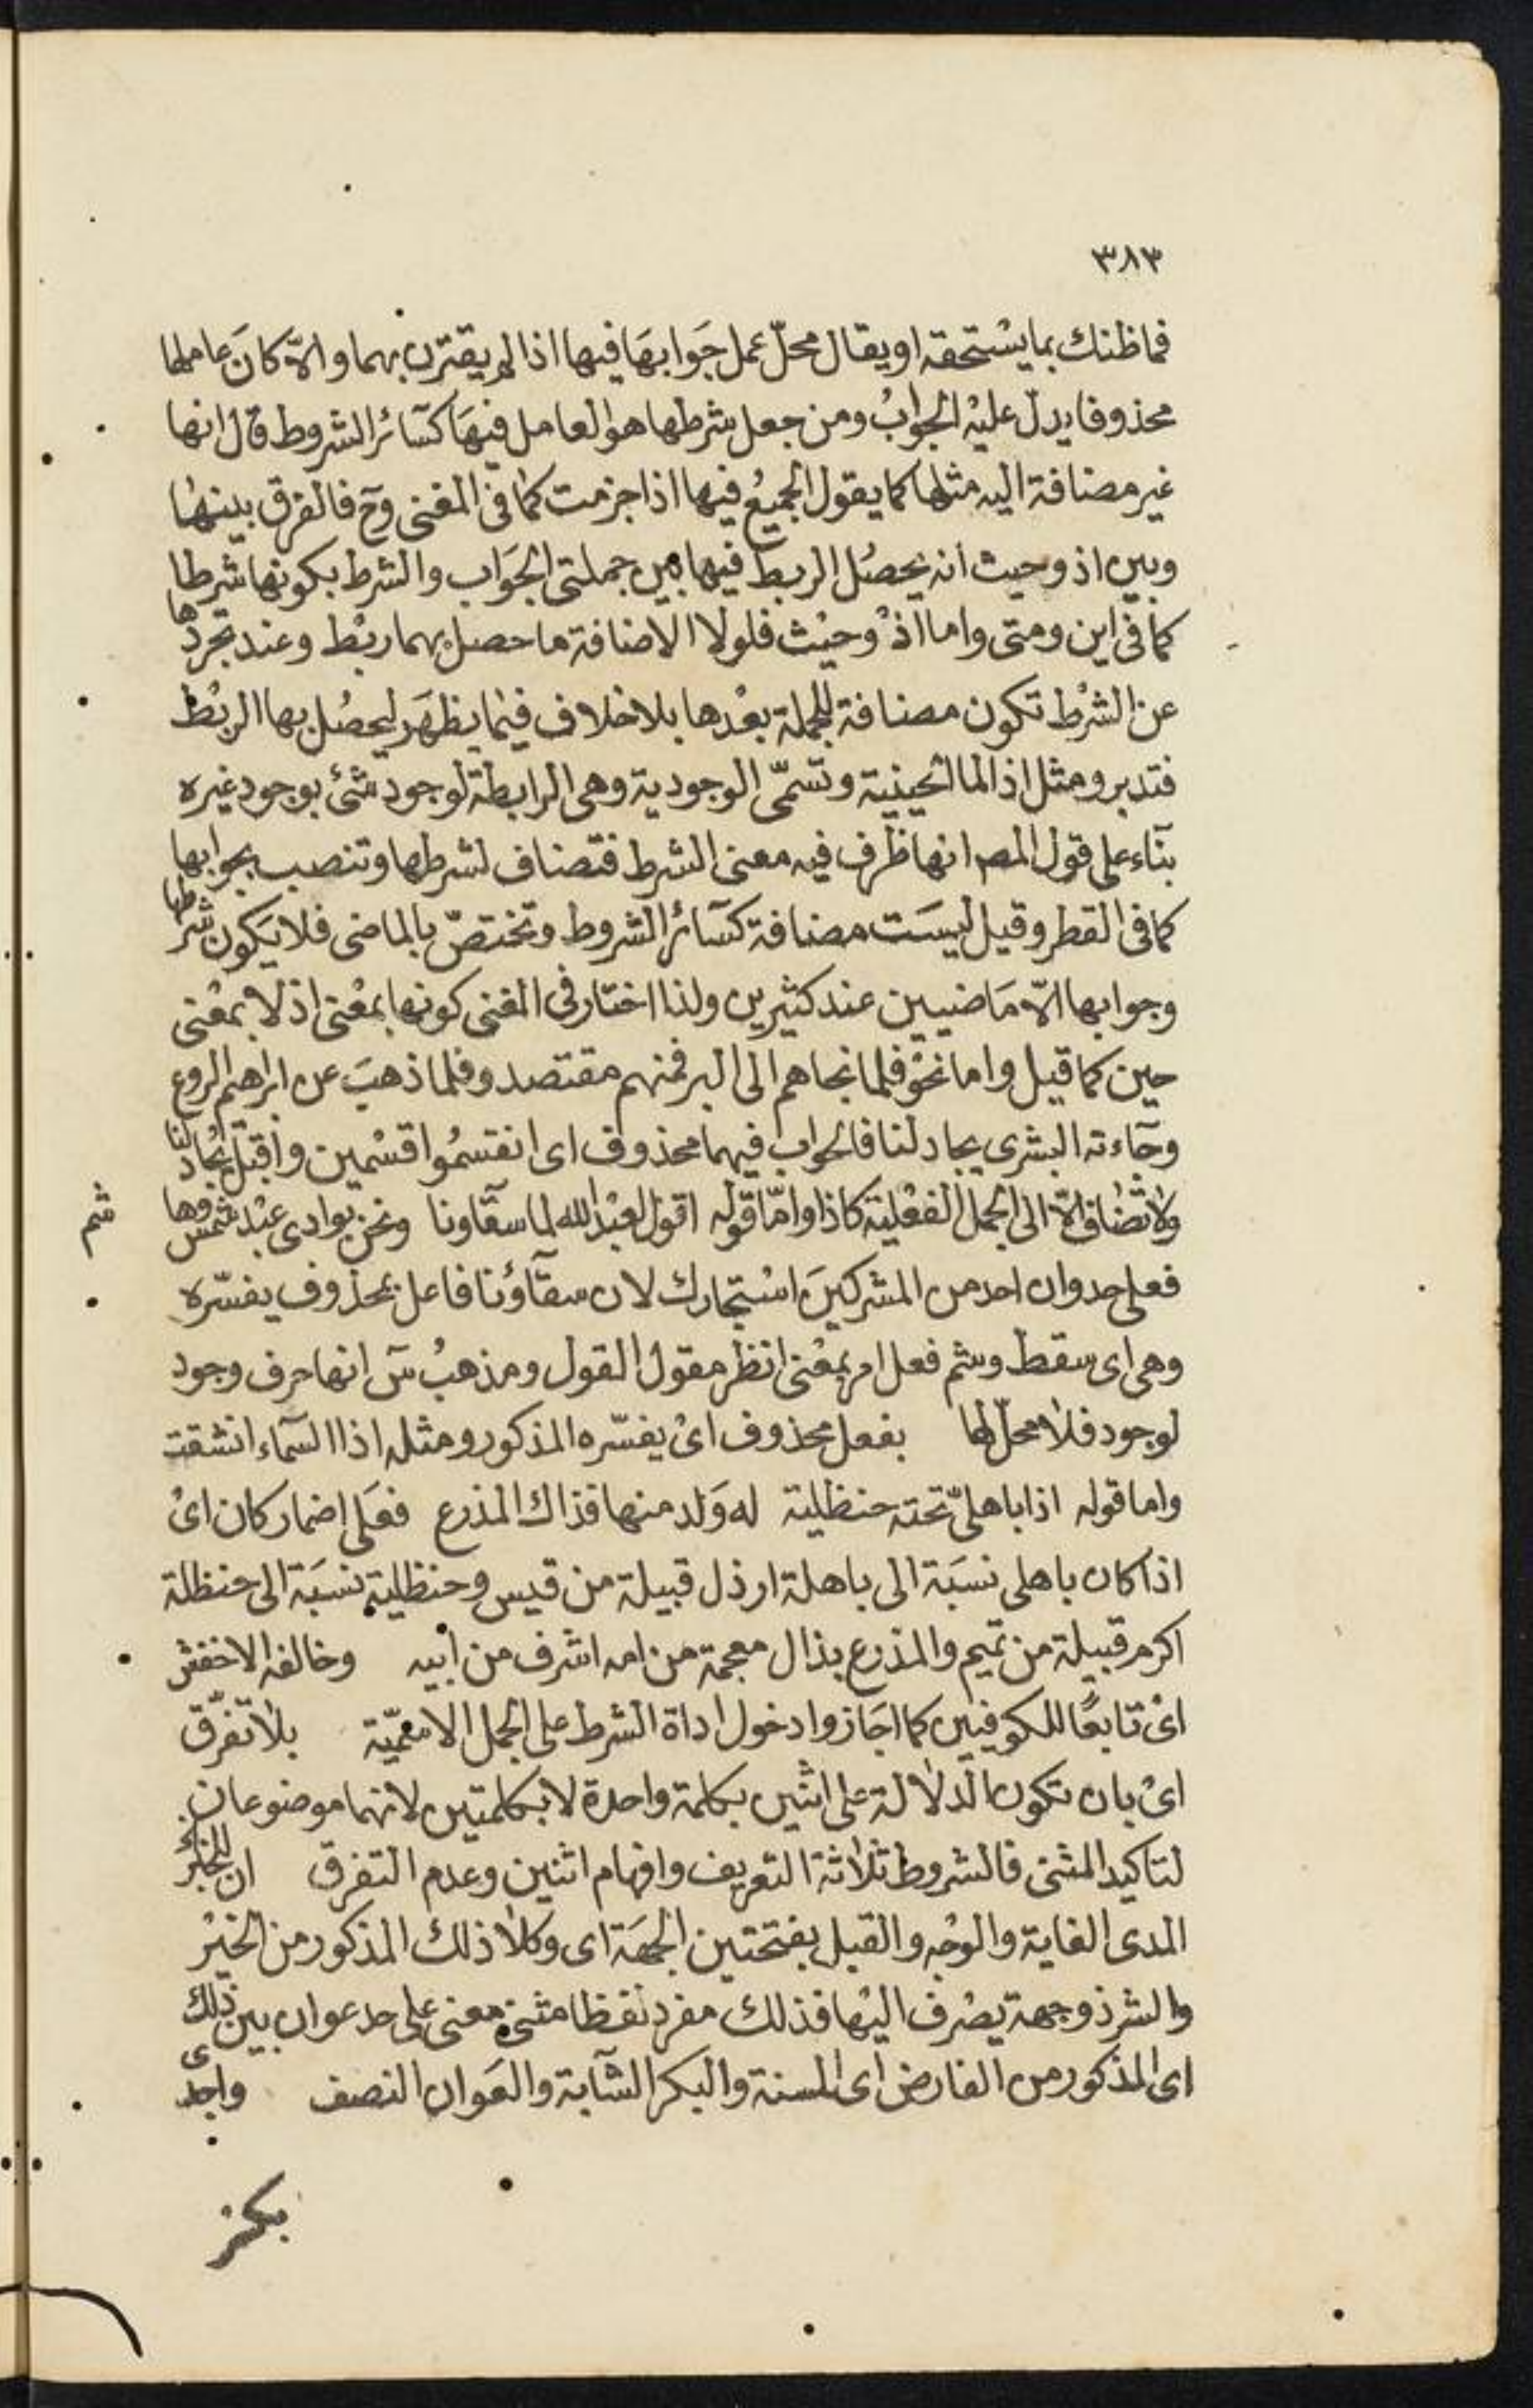 ٣٨٣
فماظنك بما يستحقه او يقال محلّ عمل جَوابهَا فيها اذا لم يقترن بهما والاّ كانَ عاملها
محذوفا يدل عليْه الجوابُ ومن جعل شرطها هو العامل فيهَا كسَآئر الشروط قال انها
غير مضافة اليه مثلها كما يقول الجميعُ فيها اذا جزمت كما فى المغنى وح فالفرق بينها
وبين اذ وحيث انه يحصُل الربط فيها بين جملتى الجوَاب والشرط بكونها شرطا
كما فى اين ومتى واما اذْ وحيْث فلولا الاضافة ما حصل بهما ربْط وعند تجردها
عن الشرْط تكون مضافة للجملة بعْدها بلا خلاف فيما يظهَر ليحصُل بها الربْط
فتدبر ومثل اذا لما الحينية وتسَمّى الوجودية وهى الرابطة لوجود شئ بوجود غيره
بنَآء على قول المصم انها ظرف فيه معنى الشرط فتضاف لشرطها وتنصب بجوابها
كما فى القطر وقيل ليسَت مضافة كسَآئر الشروط وتختصّ بالماضى فلا يكون شرطها
وجوابها الاّ مَاضيين عند كثيرين ولذا اختار فى المغنى كونها بمعْنى اذ لا بمعْنى
حين كما قيل واما نحْو فلما نجاهم الى البر فمنهم مقتصد و فلما ذهبَ عن ابراهيم الروع
وجَآءته البشرى يجادلنا فالجواب فيهما محذوف اى انقسمُوا قسْمين واقبَل يجادلنا
ولا تضَاف الاّ الى الجمل الفعْلية كاذا وامّا قوله اقول لعبْد الله لما سقَآونا ونحن بوادى عبْد شمس وهاشم
فعلى حد وان احد من المشركينَ اسْتجارك لان سقَآؤنا فاعل بمحذوف يفسّره
وهى اى سقط وشم فعل امر بمعْنى انظر مقول القول ومذهبُ سَ انها حرف وجود
لوجود فلا محلّ لها بفعل محذوف اىْ يفسّره المذكور ومثله اذا السَمآء انشقت
واما قوله اذا باهلىّ تحته حنظلية له وَلد منها فذاك المذرع ففعَلى اضمار كان اىْ
اذا كان باهلى نسبَة الى باهلة ارذل قبيلة من قيس وحنظلية نسبَة الى حنظلة
اكرم قبيلة من تميم والمذرع بذال معجمة من امه اشرف من ابيه وخالفه الاخفش
اىْ تابعًا للكوفيين كما اجَازوا دخول اداة الشرط على الجمل الاسميّة بلا تفرّق
اىْ بان تكون الدلالة على اثنين بكلمة واحدة لا بكلمتين لانهما موضوعان
لتاكيد المثنى فالشروط ثلاثة التعريف وافهام اثنين وعدم التفرق ان للخير
المدى الغاية والوجْه والقبل بفتحتين الجهَة اى وكلا ذلك المذكور من الخيْر
والشر ذو جهة يصْرف اليْها فذلك مفرد لفظا مثنى معنى على حد عوان بين ذلك
اى المذكور من الفارض اى المسنة والبكر الشآبة والعَوان النصف واحدى
بكنز